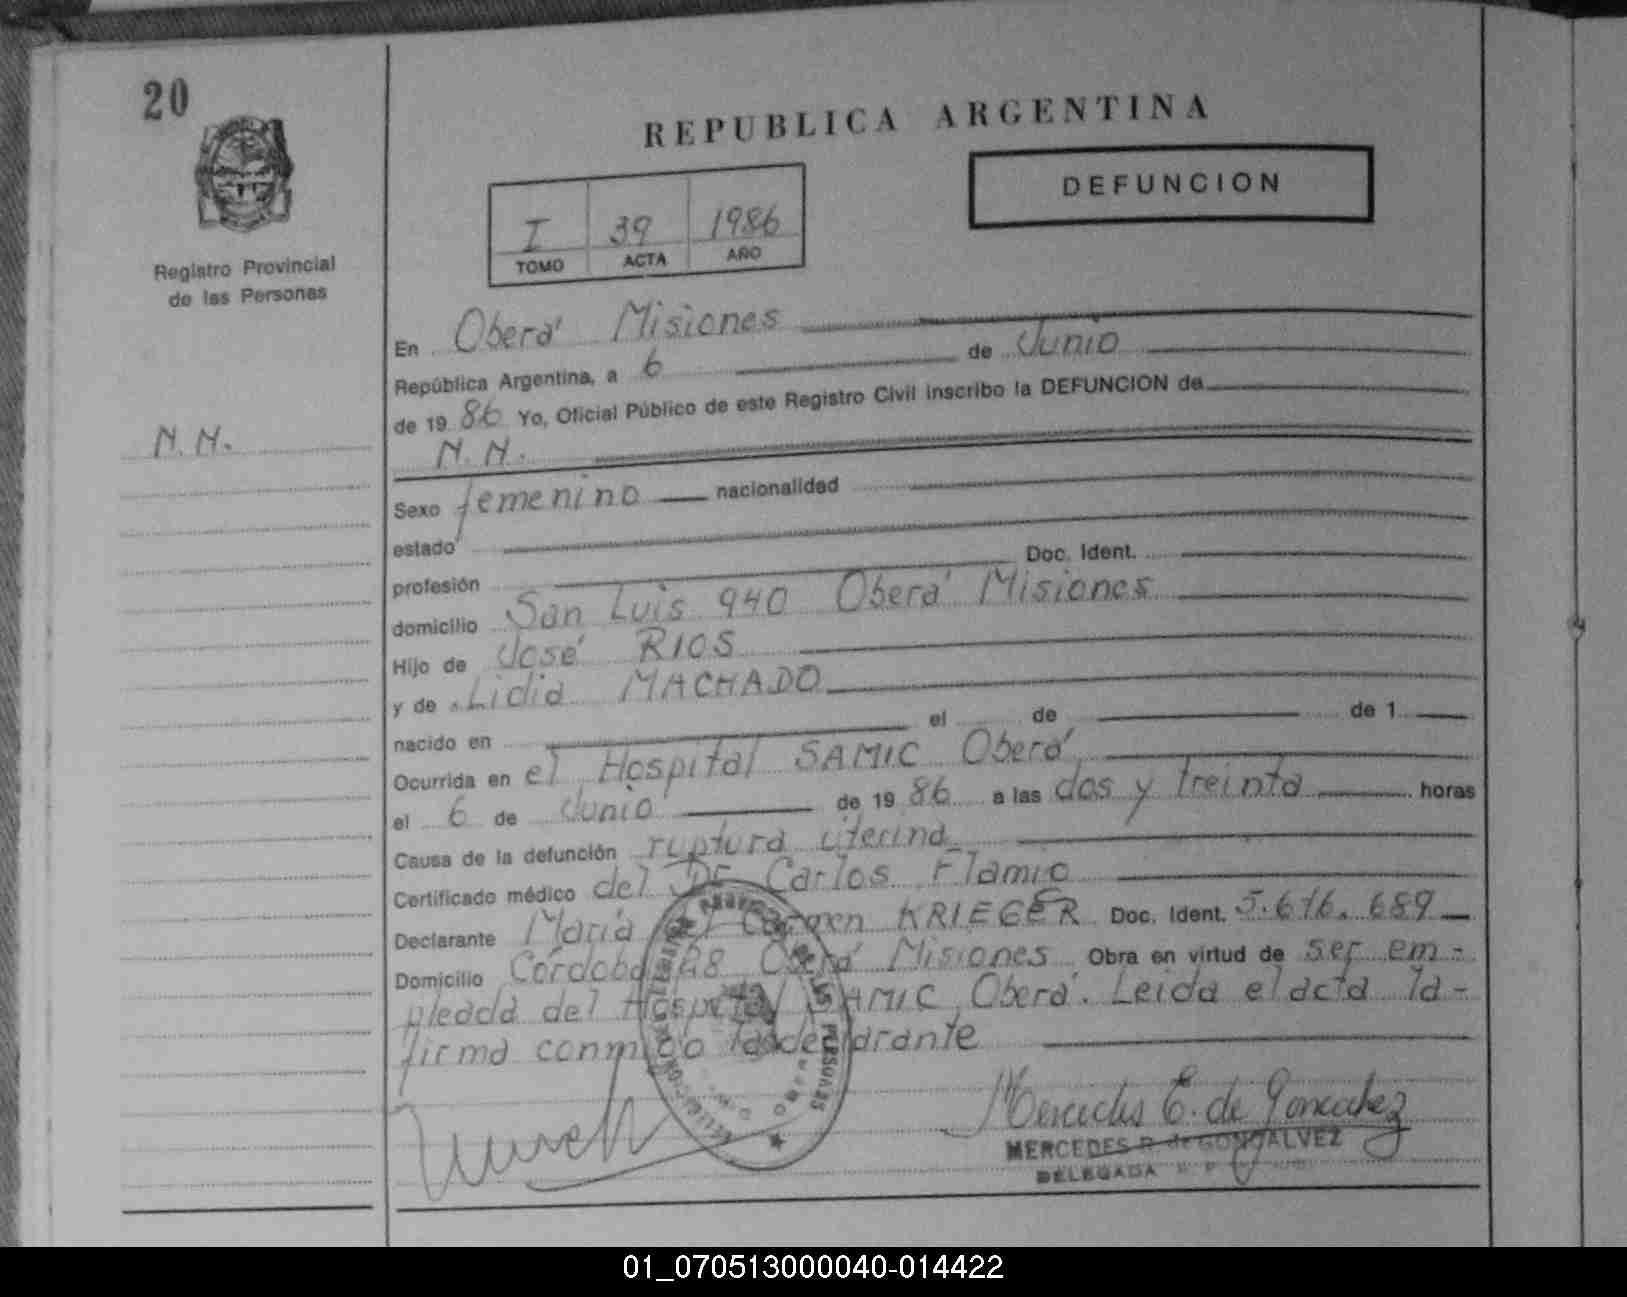 20
REPUBLICA ARGENTINA
DEFUNCION
I 39 1986
TOMO ACTA AÑO
Registro Provincial
de las Personas
En Oberá Misiones
República Argentina, a 6 de Junio
de 19 86 Yo, Oficial Público de este Registro Civil inscribo la DEFUNCION de
N.N.
N.N.
Sexo femenino nacionalidad
estado
profesión Doc. Ident.
domicilio San Luis 940 Oberá Misiones
Hijo de José RIOS
y de Lidia MACHADO
nacido en el de de 1
Ocurrida en el Hospital SAMIC Oberá
el 6 de Junio de 19 86 a las dos y treinta horas
Causa de la defunción ruptura uterina
Certificado médico del Dr Carlos Flamio
Declarante María del Carmen KRIEGER Doc. Ident. 5.616.689
Domicilio Córdoba Oberá Misiones Obra en virtud de ser em-
pleada del Hospital SAMIC Oberá. Leida el acta la-
firma conmigo la declarante
Mercedes de Goncalvez
MERCEDES de GONCALVEZ
DELEGADA
01_070513000040-014422